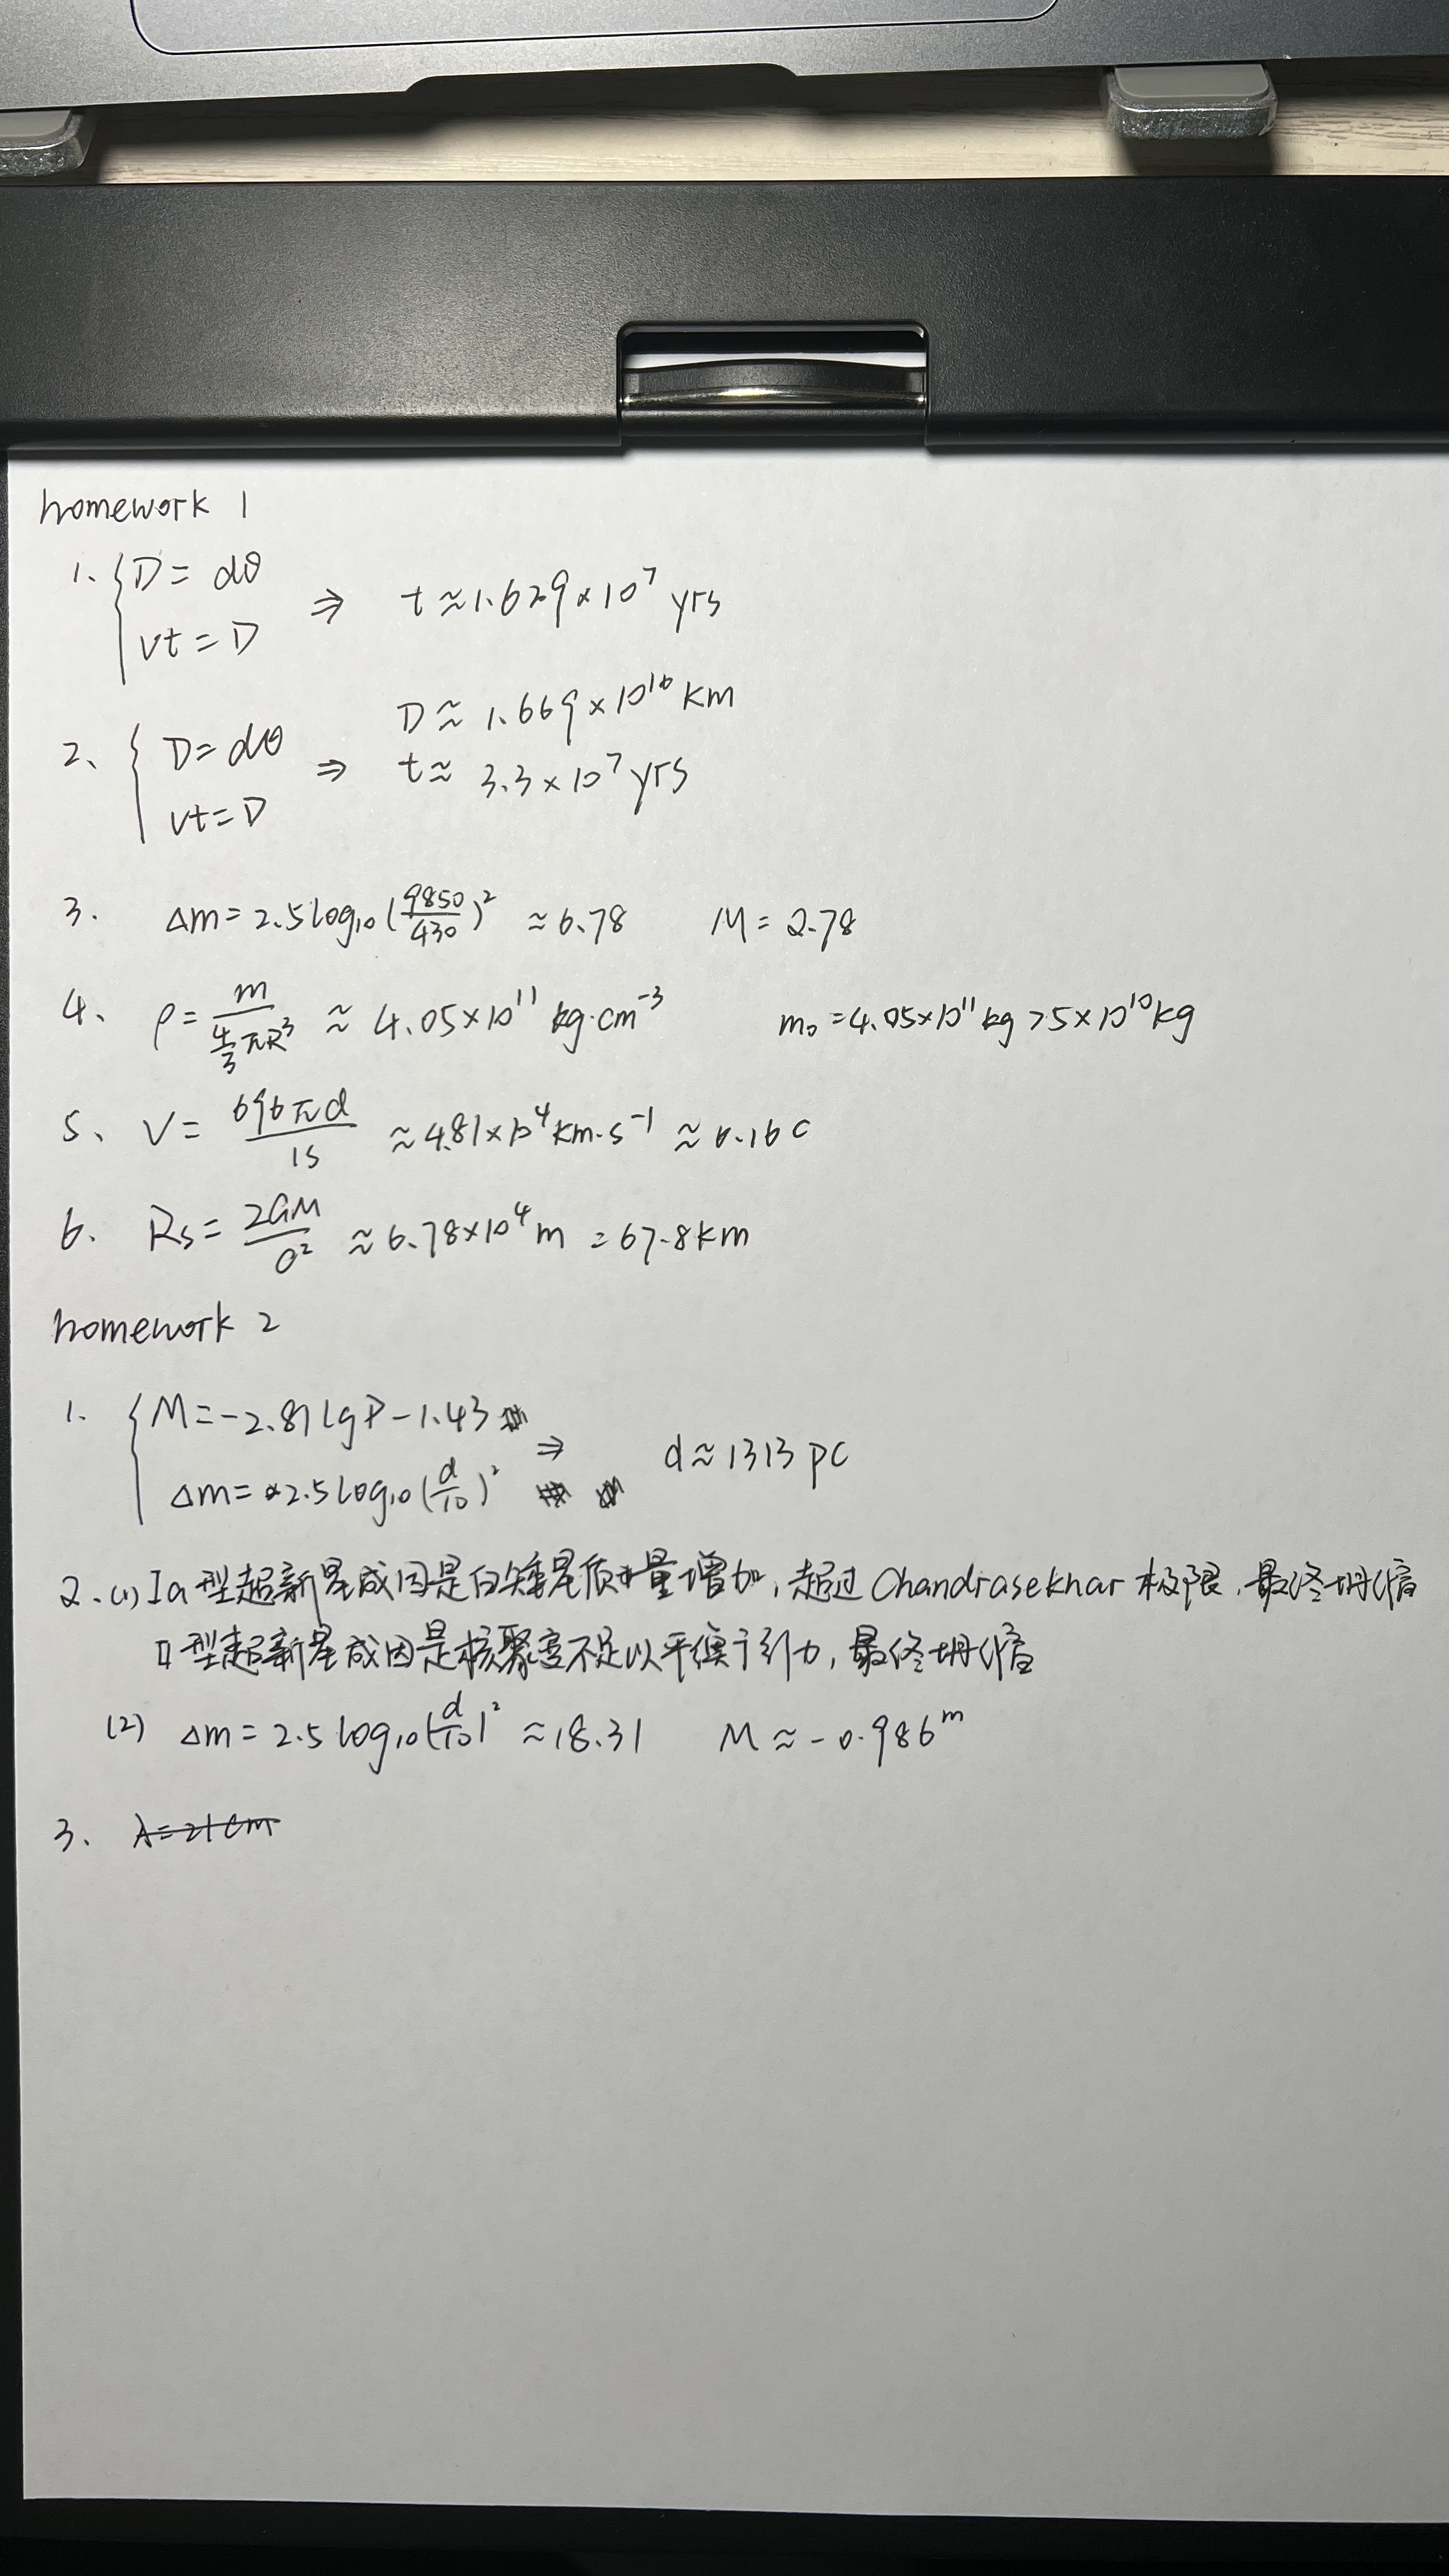 homework 1
1. { D = dθ
vt = D ⇒ t ≈ 1.629 × 10⁷ yrs
2、 { D = dθ
vt = D ⇒ D ≈ 1.669 × 10¹⁶ km
t ≈ 3.3 × 10⁷ yrs
3. Δm = 2.5 log₁₀(9850/430)² ≈ 6.78 M = 2.78
4、 ρ = m/(4/3 πR³) ≈ 4.05×10¹¹ kg·cm⁻³ m₀ = 4.05×10¹¹ kg > 5×10¹⁰ kg
5、 V = 696πd/1s ≈ 4.81×10⁴ km·s⁻¹ ≈ 0.16 c
6. Rs = 2GM/c² ≈ 6.78×10⁴ m = 67.8 km
homework 2
1. { M = -2.81 lgP - 1.43
Δm = 2.5 log₁₀(d/10)² ⇒ d ≈ 1313 pc
2. (1) Ia型超新星成因是白矮星质量增加，超过 Chandrasekhar 极限，最终坍缩
II型超新星成因是核聚变不足以平衡于引力，最终坍缩
(2) Δm = 2.5 log₁₀(d/10)² ≈ 18.31 M ≈ -0.986ᵐ
3. λ = 21cm